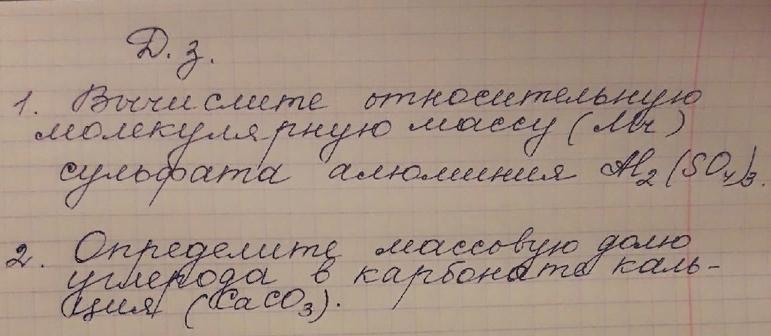 Д. з.
1. Вычислите относительную
молекулярную массу (Mr)
сульфата алюминия Al₂(SO₄)₃.
2. Определите массовую долю
углерода в карбонате каль-
ция (CaCO₃).